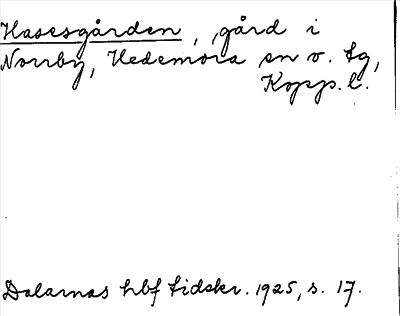 Hasesgården, gård i
Norrby, Hedemora sn o. tg,
Kopp. l.
Dalarnas hbf tidskr. 1925, s. 17.